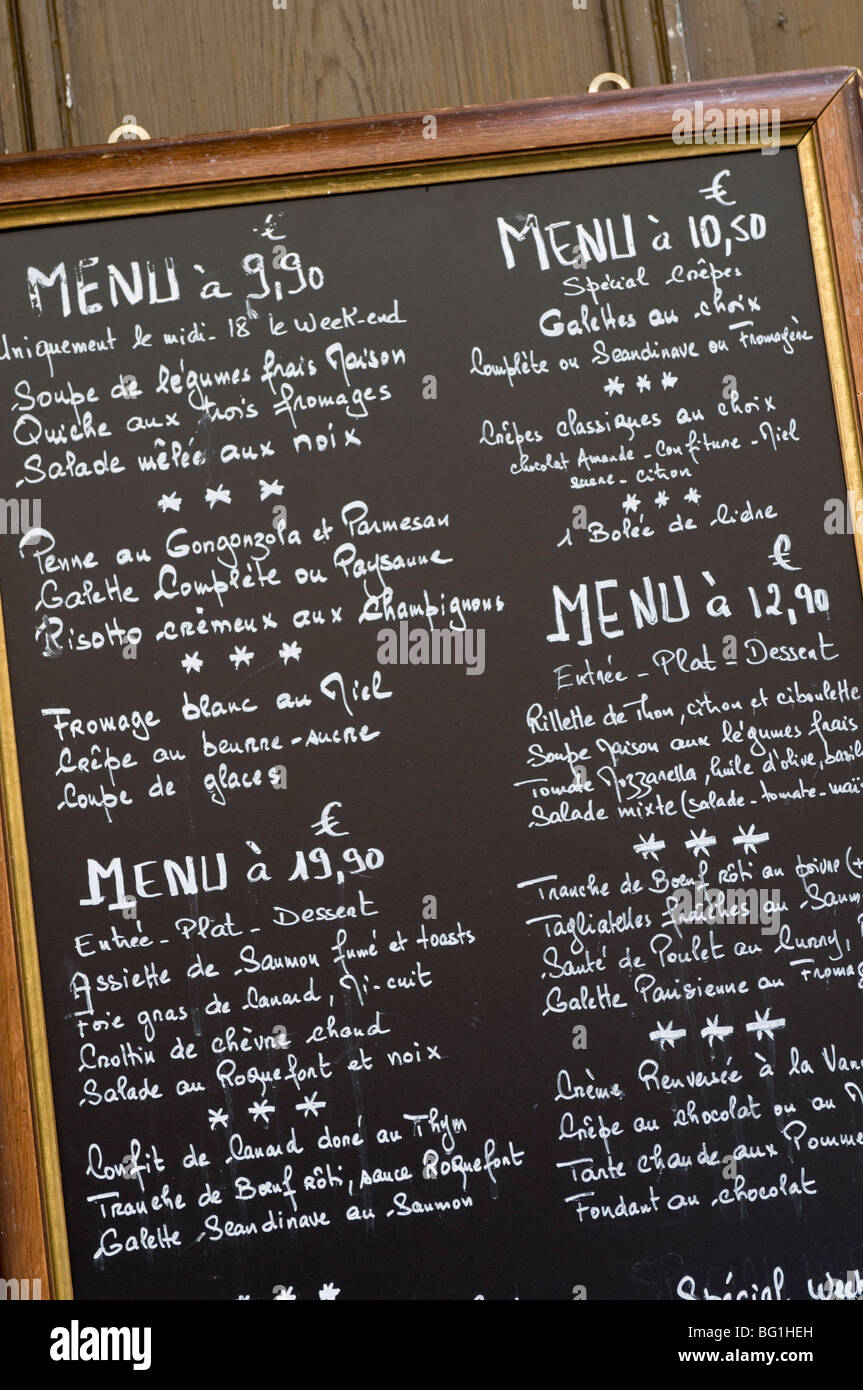 €
MENU à 9,90
Uniquement le midi - 18 le week-end
Soupe de légumes frais Maison
Quiche aux trois fromages
Salade mêlée aux noix
***
Penne au Gongonzola et Parmesan
Galette Complète ou Paysanne
Risotto crémeux aux Champignons
***
Fromage blanc au Miel
Crêpe au beurre-sucre
Coupe de glaces
€
MENU à 19,90
Entrée - Plat - Dessert
Assiette de Saumon fumé et toasts
Foie gras de Canard, Mi-cuit
Crottin de chèvre chaud
Salade au Roquefort et noix
***
Confit de Canard doré au Thym
Tranche de Bœuf rôti, sauce Roquefort
Galette Scandinave au Saumon
***
€
MENU à 10,50
Spécial Crêpes
Galettes au choix
Complète ou Scandinave ou Fromagère
***
Crêpes classiques au choix
chocolat Amande - Confiture - Miel
sucre - citron
***
1 Bolée de Cidre
€
MENU à 12,90
Entrée - Plat - Dessert
Rillette de Thon, citron et ciboulette
Soupe Maison aux légumes frais
Tomate Mozzarella, huile d'olive, basil
Salade mixte (salade - tomate - maï
***
Tranche de Bœuf rôti au poivre (+
Tagliatelles fraîches au Saum
Sauté de Poulet au Curry,
Galette Parisienne au Fromag
***
Crème Renversée à la Van
Crêpe au chocolat ou au M
Tarte chaude aux Pomme
Fondant au chocolat
Spécial Week
alamy
Image ID: BG1HEH
www.alamy.com